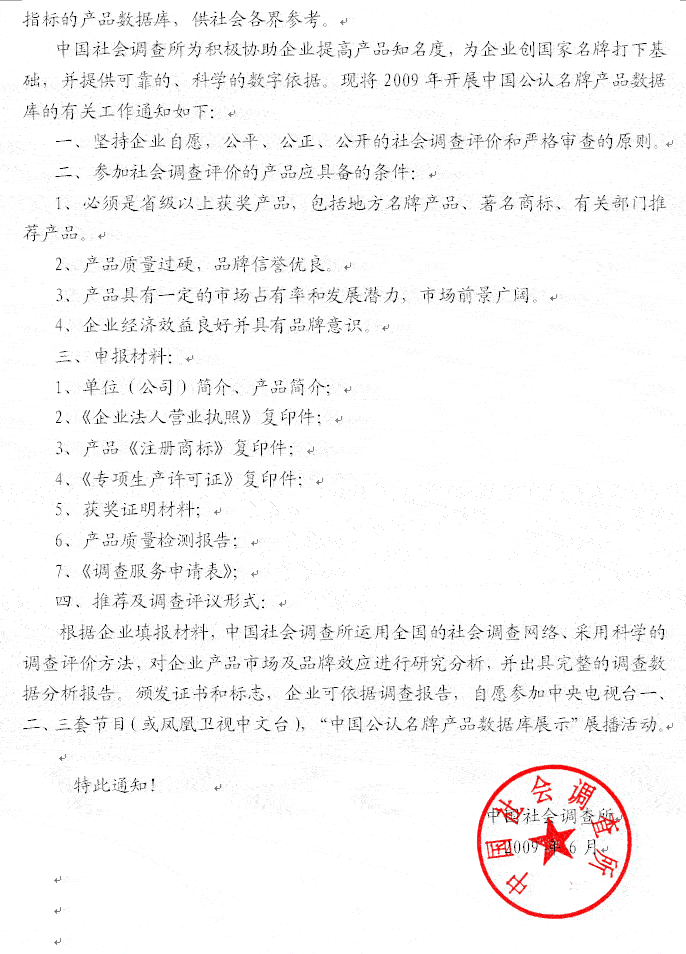 指标的产品数据库，供社会各界参考。
中国社会调查所为积极协助企业提高产品知名度，为企业创国家名牌打下基
础，并提供可靠的、科学的数字依据。现将 2009 年开展中国公认名牌产品数据
库的有关工作通知如下：
一、坚持企业自愿，公平、公正、公开的社会调查评价和严格审查的原则。
二、参加社会调查评价的产品应具备的条件：
1、必须是省级以上获奖产品，包括地方名牌产品、著名商标、有关部门推
荐产品。
2、产品质量过硬，品牌信誉优良。
3、产品具有一定的市场占有率和发展潜力，市场前景广阔。
4、企业经济效益良好并具有品牌意识。
三、申报材料：
1、单位（公司）简介、产品简介；
2、《企业法人营业执照》复印件；
3、产品《注册商标》复印件；
4、《专项生产许可证》复印件；
5、获奖证明材料；
6、产品质量检测报告；
7、《调查服务申请表》；
四、推荐及调查评议形式：
根据企业填报材料，中国社会调查所运用全国的社会调查网络、采用科学的
调查评价方法，对企业产品市场及品牌效应进行研究分析，并出具完整的调查数
据分析报告。颁发证书和标志，企业可依据调查报告，自愿参加中央电视台一、
二、三套节目（或凤凰卫视中文台），“中国公认名牌产品数据库展示”展播活动。
特此通知！
中国社会调查所
2009 年 6 月
中国社会调查所